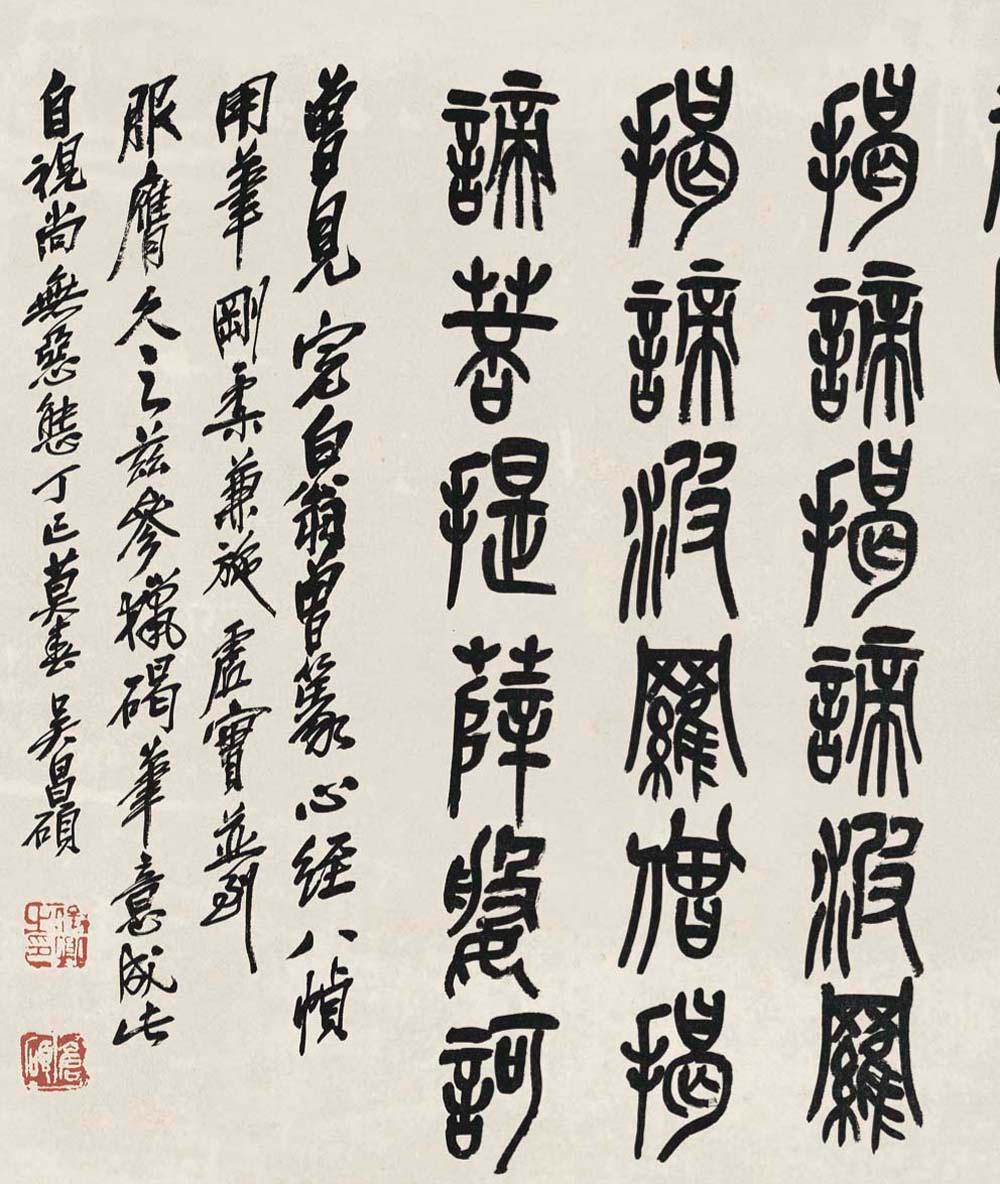 揭諦揭諦波羅
揭諦波羅僧揭
諦菩提薩婆訶
曾見完白翁曾篆心經八幀
用筆剛柔兼施虛實並到
服膺久之茲參獵碣筆意成此
自視尚無惡態丁巳莫春吳昌碩
俊卿之印
倉碩